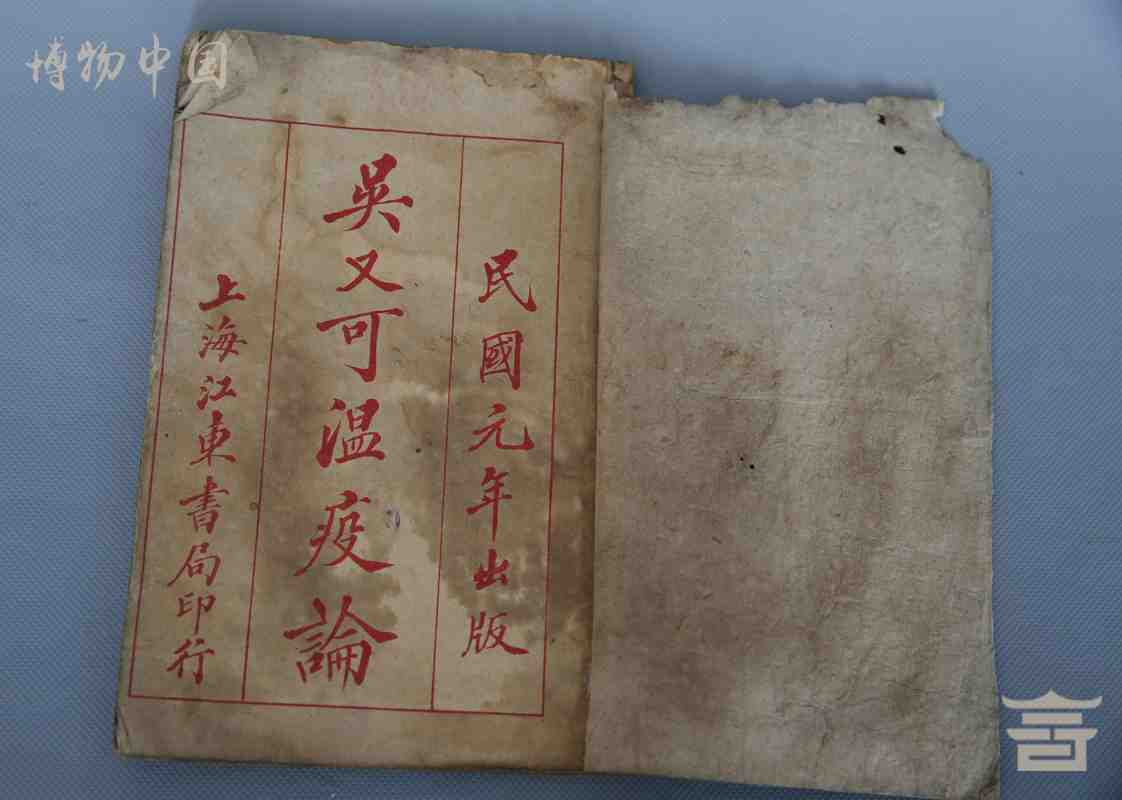 博物中国
民國元年出版
吳又可温疫論
上海江東書局印行